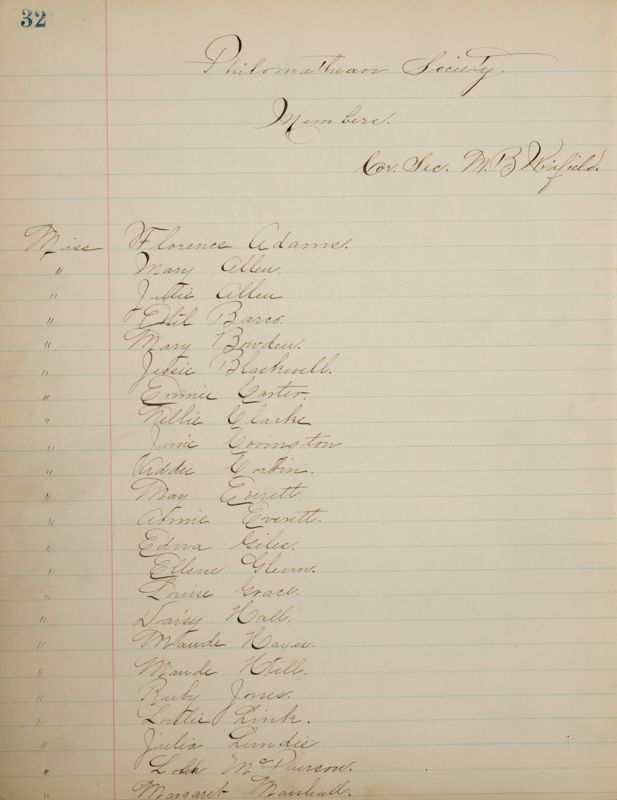 32
Philomathean Society.
Members.
Cor. Sec. M. B Winfield.
Miss Florence Adams.
" Mary Allen.
" Allen
" Ethil Barco.
" Mary Bowden.
" Jessie Blackwell.
" Emmie Carter.
" Nellie Clarke
" Janie Covington
" Addie Corbin.
" May Everett.
" Annie Everett.
" Edna Giles.
" Ellene Glenn.
" Louise Grace.
" Daisy Hall.
" Maude Hayes.
" Maude Hill.
" Ruby Jones.
" Lottie Link.
" Julia Lundie
" McPherson.
" Margaret Marshall.